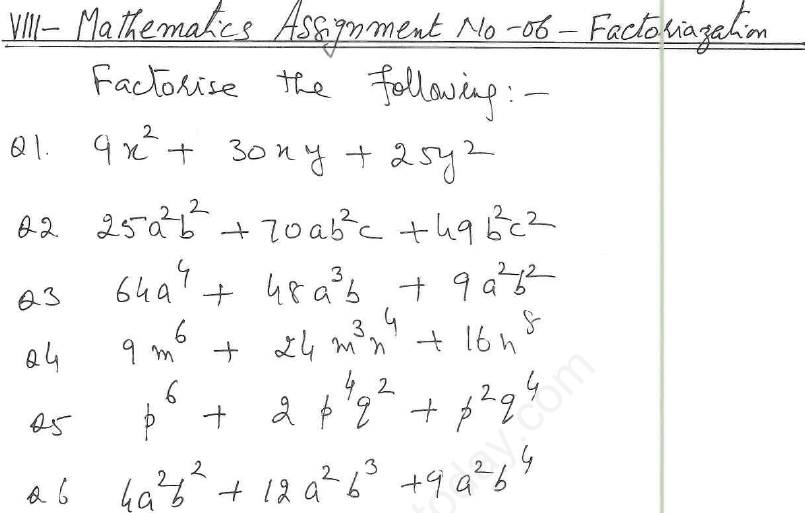 VIII- Mathematics Assignment No-06 - Factoriazation
Factorise the following:-
Q1. 9x² + 30xy + 25y²
Q2 25a²b² + 70ab²c + 49b²c²
Q3 64a⁴ + 48a³b + 9a²b²
Q4 9m⁶ + 24m³n⁴ + 16n⁸
Q5 p⁶ + 2p⁴q² + p²q⁴
Q6 4a²b² + 12a²b³ + 9a²b⁴
today.com